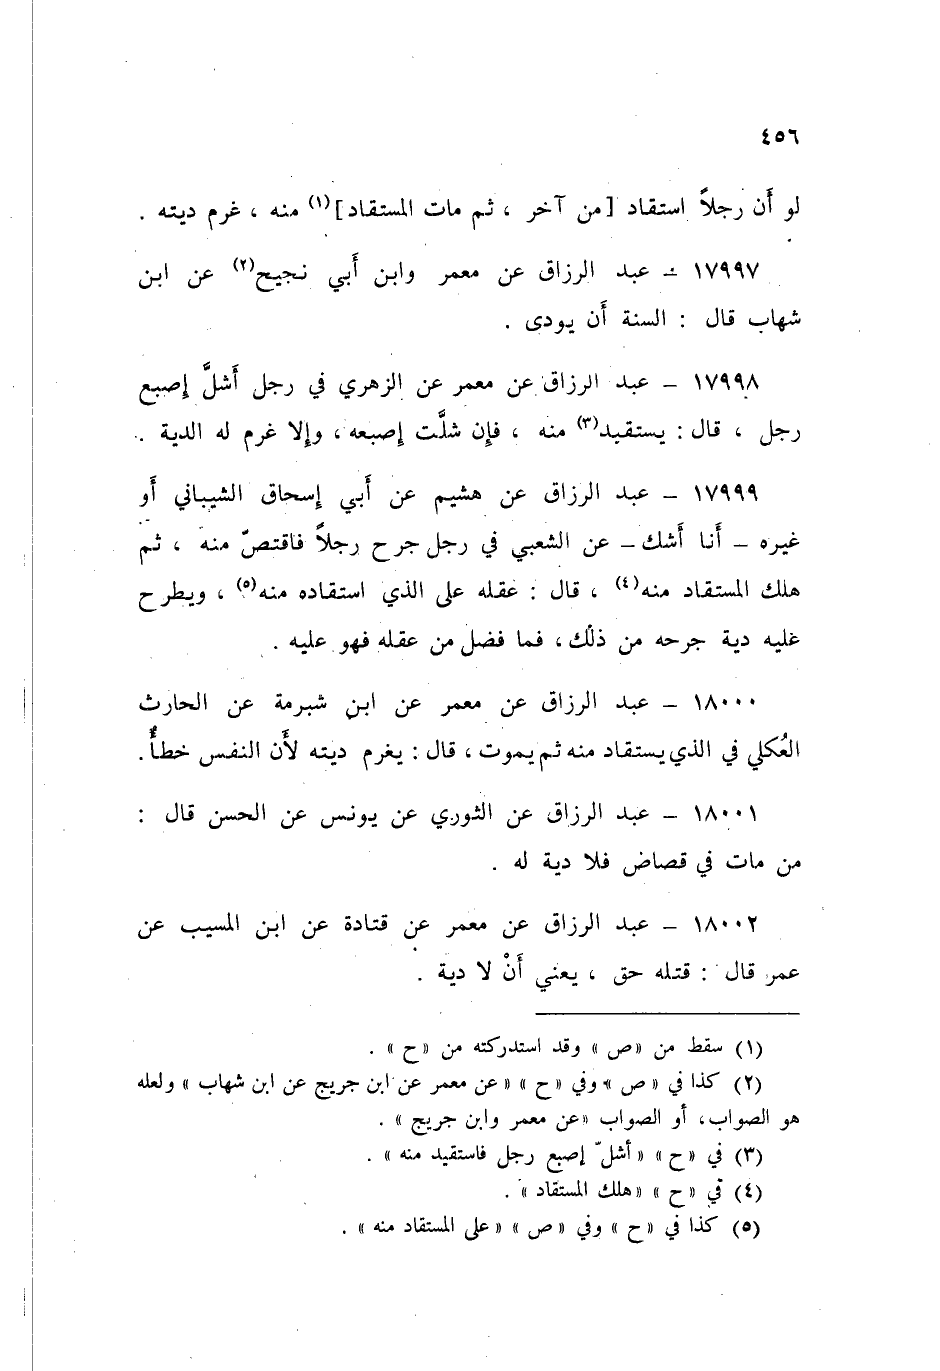 ٤٥٦
لو أن رجلاً استقاد [من آخر ، ثم مات المستقاد](١) منه ، غرم ديته .
١٧٩٩٧ – عبد الرزاق عن معمر وابن أبي نجيح(٢) عن ابن
شهاب قال : السنة أن يودى .
١٧٩٩٨ – عبد الرزاق عن معمر عن الزهري في رجل أشلَّ إصبع
رجل ، قال : يستقيد(٣) منه ، فإن شلَّت إصبعه ، وإلا غرم له الدية .
١٧٩٩٩ – عبد الرزاق عن هشيم عن أبي إسحاق الشيباني أو
غيره – أنا أشك – عن الشعبي في رجل جرح رجلاً فاقتصّ منه ، ثم
هلك المستقاد منه(٤) ، قال : عقله على الذي استقاده منه(٥) ، ويطرح
عليه دية جرحه من ذلك ، فما فضل من عقله فهو عليه .
١٨٠٠٠ – عبد الرزاق عن معمر عن ابن شبرمة عن الحارث
العُكلي في الذي يستقاد منه ثم يموت ، قال : يغرم ديته لأن النفس خطأٌ .
١٨٠٠١ – عبد الرزاق عن الثوري عن يونس عن الحسن قال :
من مات في قصاص فلا دية له .
١٨٠٠٢ – عبد الرزاق عن معمر عن قتادة عن ابن المسيب عن
عمر قال : قتله حق ، يعني أنْ لا دية .
(١) سقط من «ص» وقد استدركته من «ح» .
(٢) كذا في «ص» وفي «ح» «عن معمر عن ابن جريج عن ابن شهاب» ولعله
هو الصواب، أو الصواب «عن معمر وابن جريج» .
(٣) في «ح» «أشلّ إصبع رجل فاستقيد منه» .
(٤) في «ح» «هلك المستقاد» .
(٥) كذا في «ح» وفي «ص» «على المستقاد منه» .